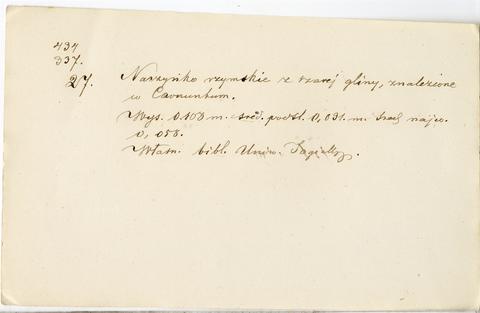 434
337.
27. Naczyńko rzymskie z szarej gliny, znalezione
w Carnuntum.
Wys. 0.103 m. śred. podst. 0,031. m. śred. najw.
0,058.
Własn. bibl. Uniw. Jagielloń.